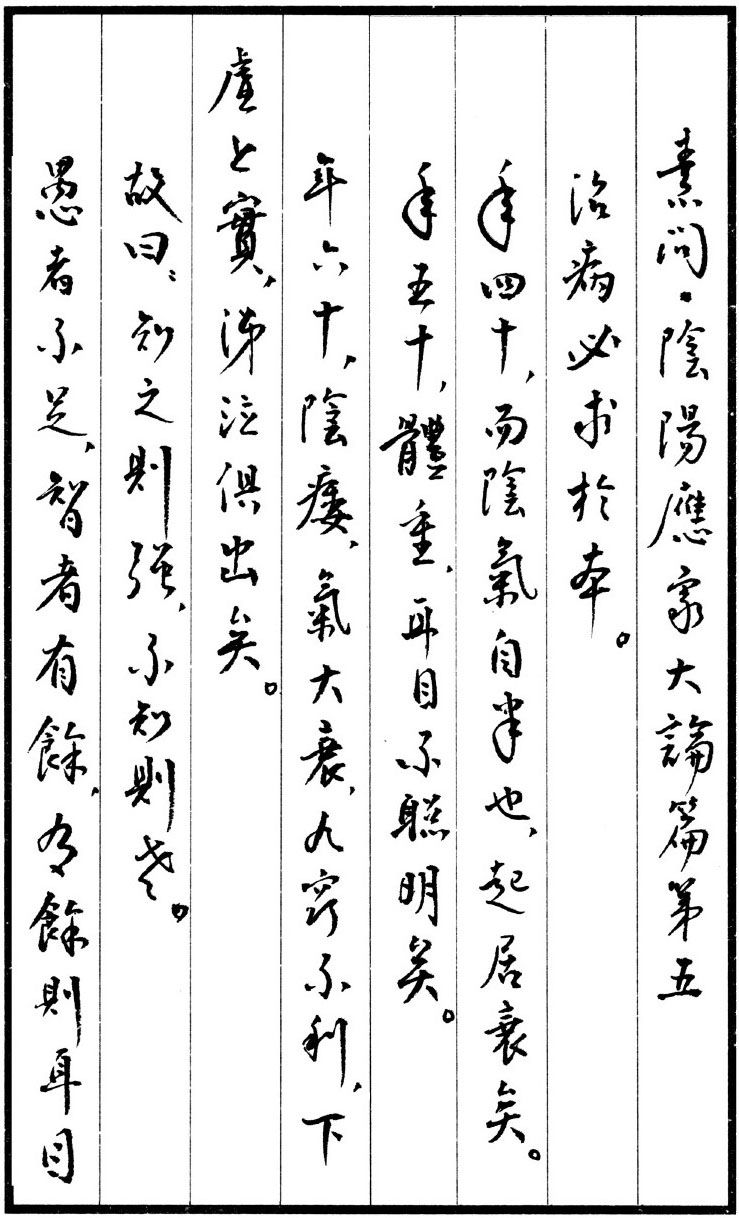 素問·陰陽應象大論篇第五
治病必求於本。
年四十，而陰氣自半也，起居衰矣。
年五十，體重，耳目不聰明矣。
年六十，陰痿，氣大衰，九竅不利，下
虛上實，涕泣俱出矣。
故曰：知之則强，不知則老。
愚者不足，智者有餘，有餘則耳目